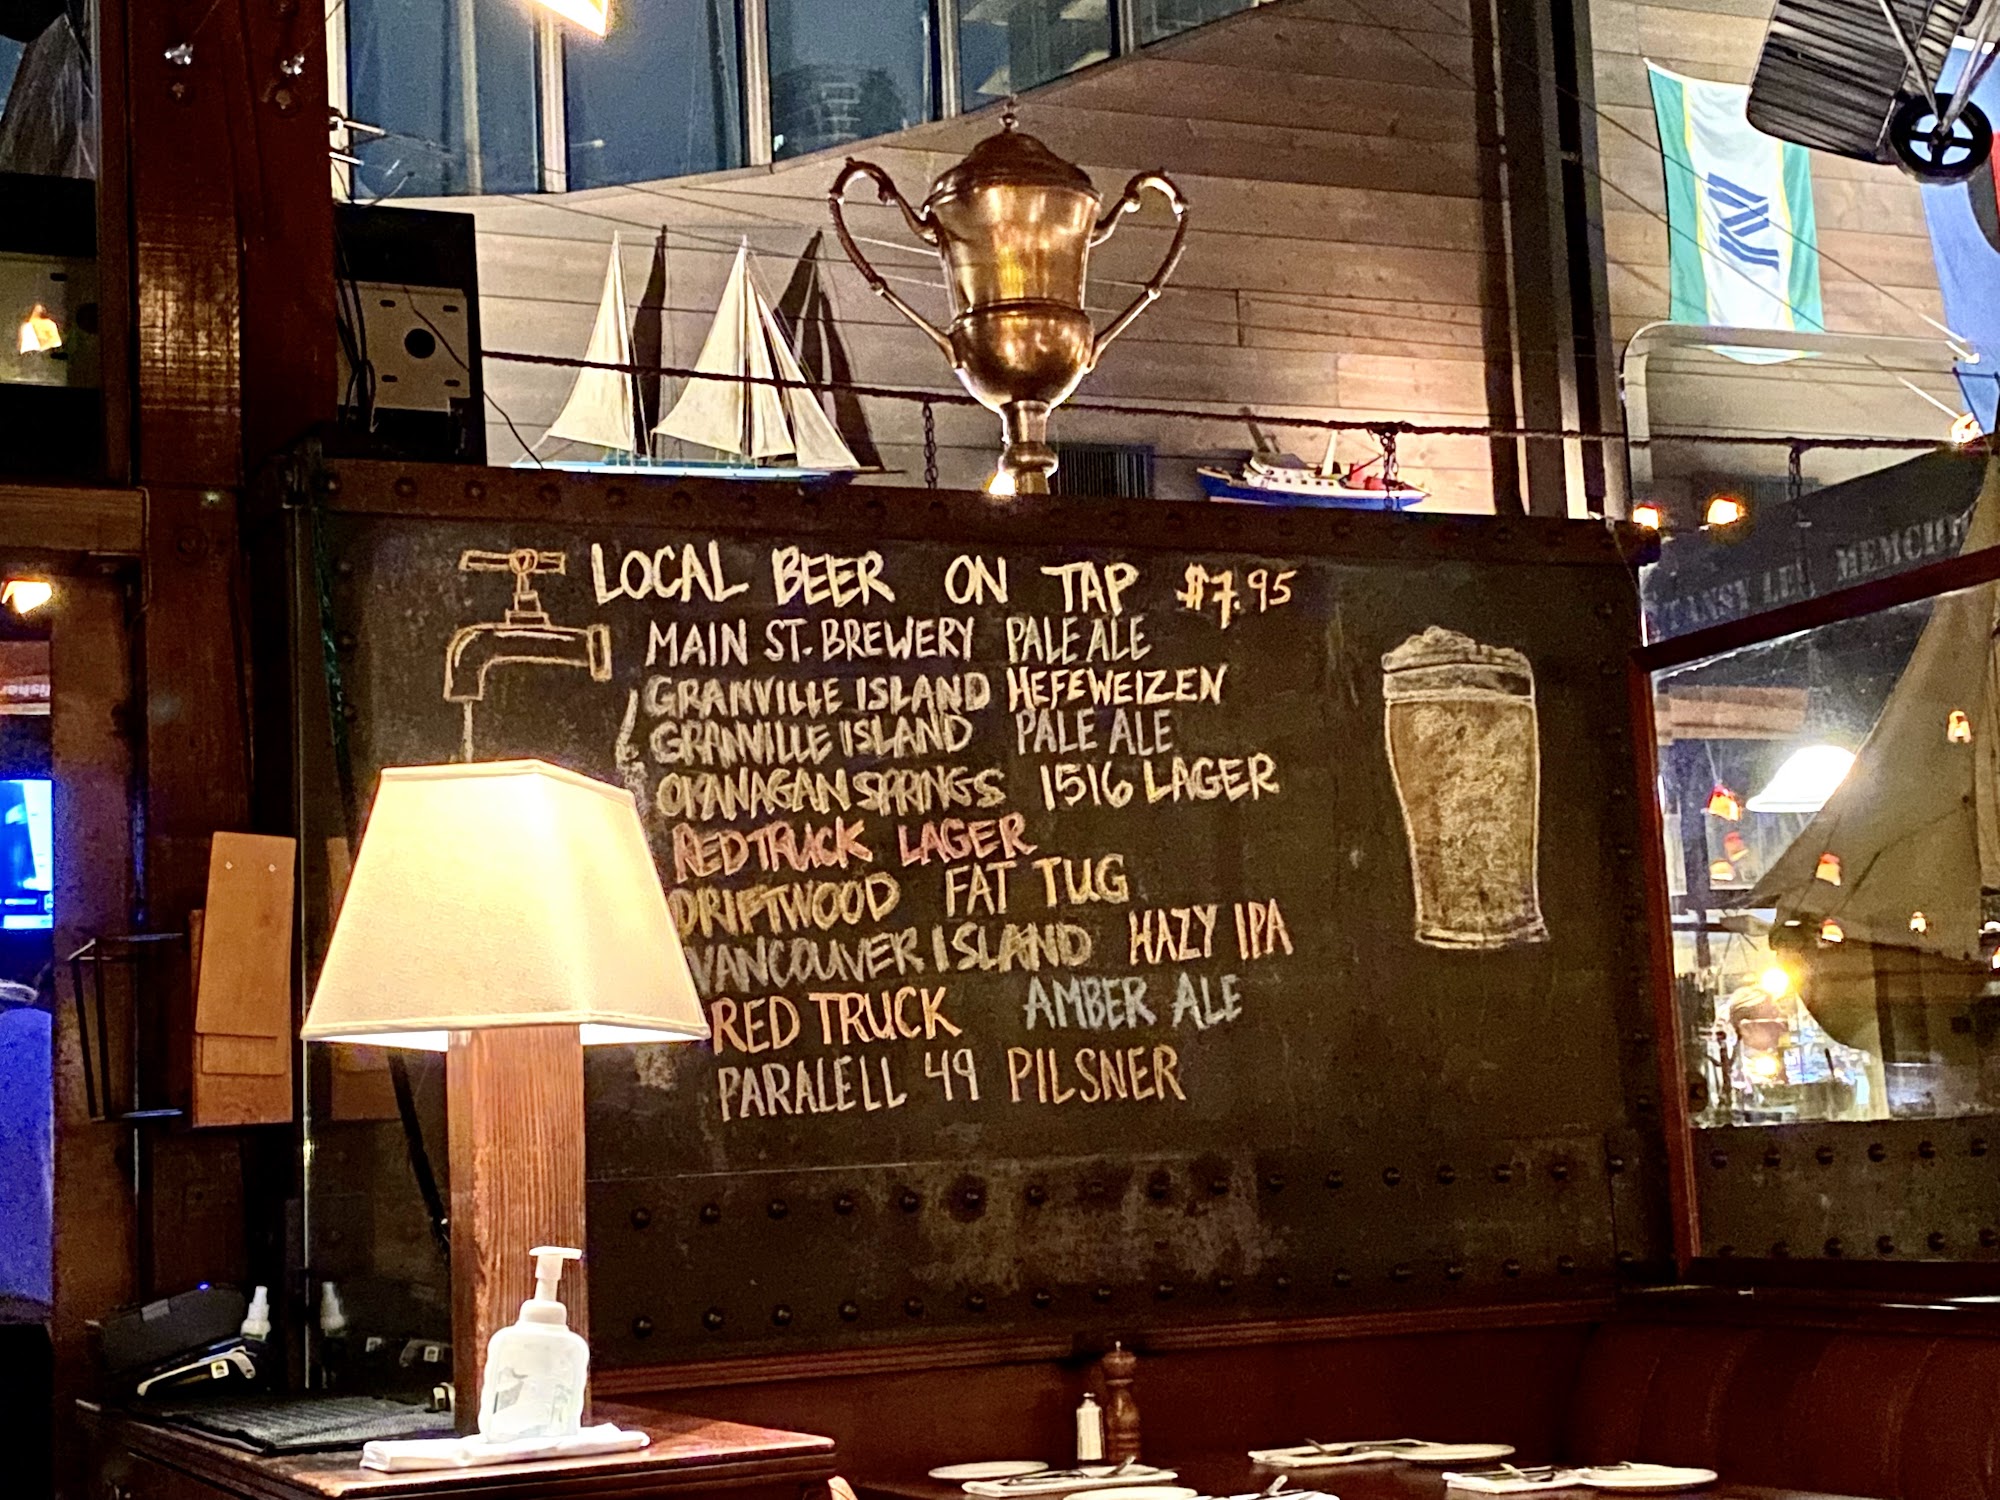 LOCAL BEER ON TAP $7.95
MAIN ST. BREWERY PALE ALE
GRANVILLE ISLAND HEFEWEIZEN
GRANVILLE ISLAND PALE ALE
OKANAGAN SPRINGS 1516 LAGER
RED TRUCK LAGER
DRIFTWOOD FAT TUG
VANCOUVER ISLAND HAZY IPA
RED TRUCK AMBER ALE
PARALELL 49 PILSNER